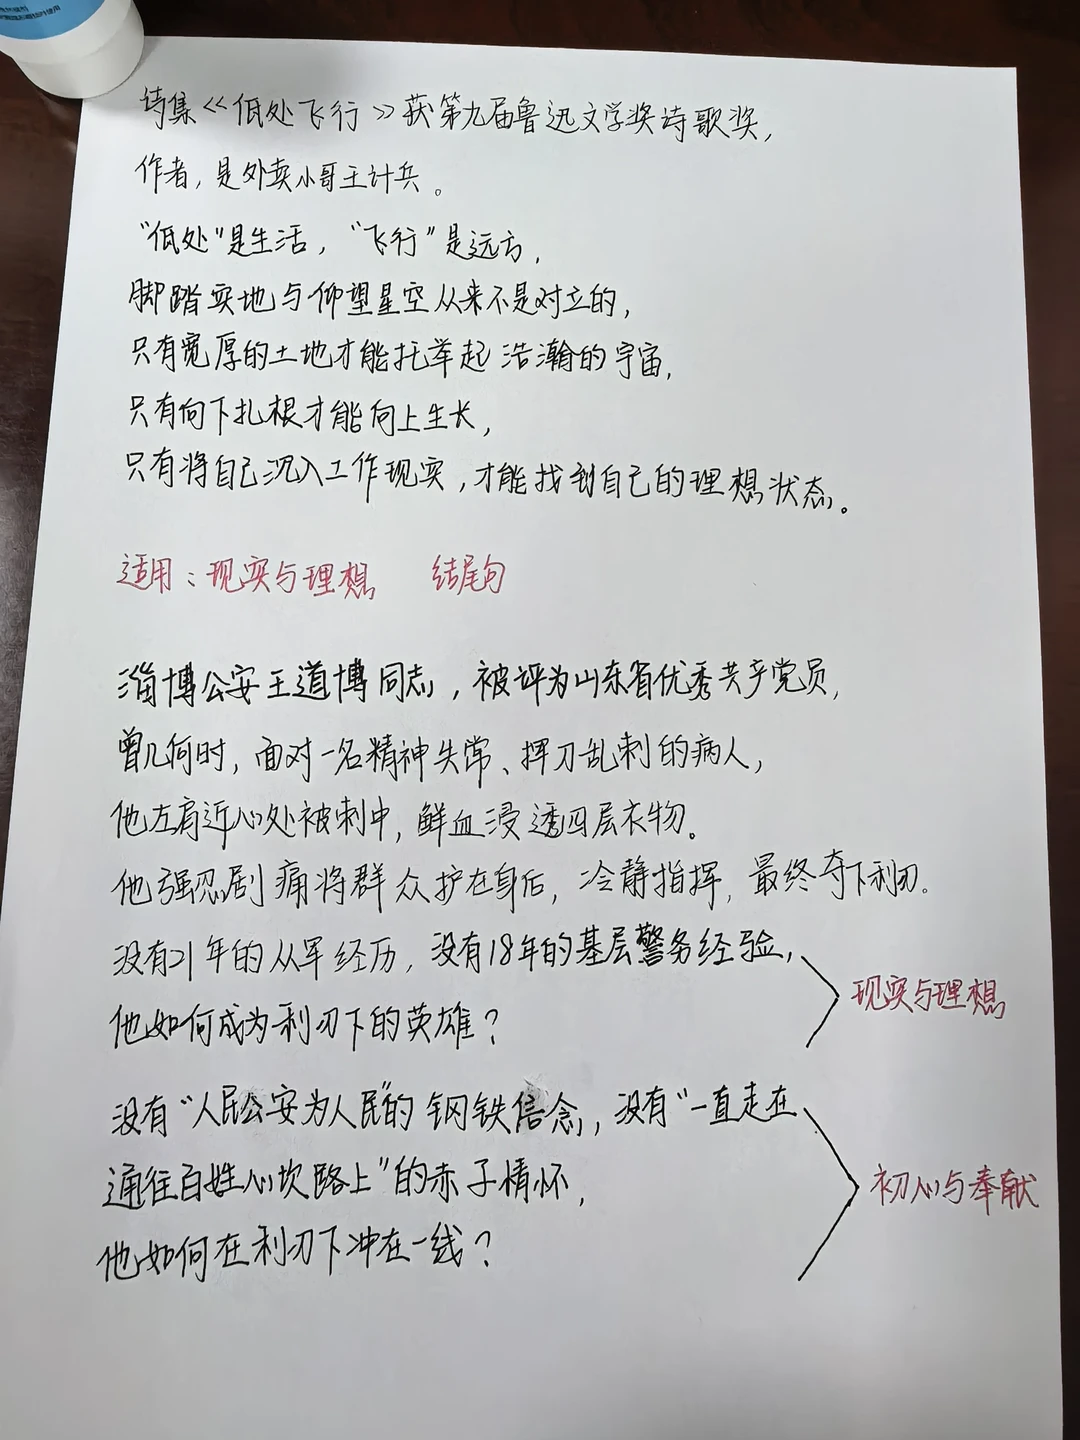 诗集《低处飞行》获第九届鲁迅文学奖诗歌奖，
作者，是外卖小哥王计兵。
“低处”是生活，“飞行”是远方，
脚踏实地与仰望星空从来不是对立的，
只有宽厚的土地才能托举起浩瀚的宇宙，
只有向下扎根才能向上生长，
只有将自己沉入工作现实，才能找到自己的理想状态。
适用：现实与理想 结尾句
淄博公安王道博同志，被评为山东省优秀共产党员，
曾几何时，面对一名精神失常、挥刀乱刺的病人，
他左肩近心处被刺中，鲜血浸透四层衣物。
他强忍剧痛将群众护在身后，冷静指挥，最终夺下利刃。
没有21年的从军经历，没有18年的基层警务经验，
他如何成为利刃下的英雄？
现实与理想
没有“人民公安为人民”的钢铁信念，没有“一直走在
通往百姓心坎路上”的赤子情怀，
他如何在利刃下冲在一线？
初心与奉献